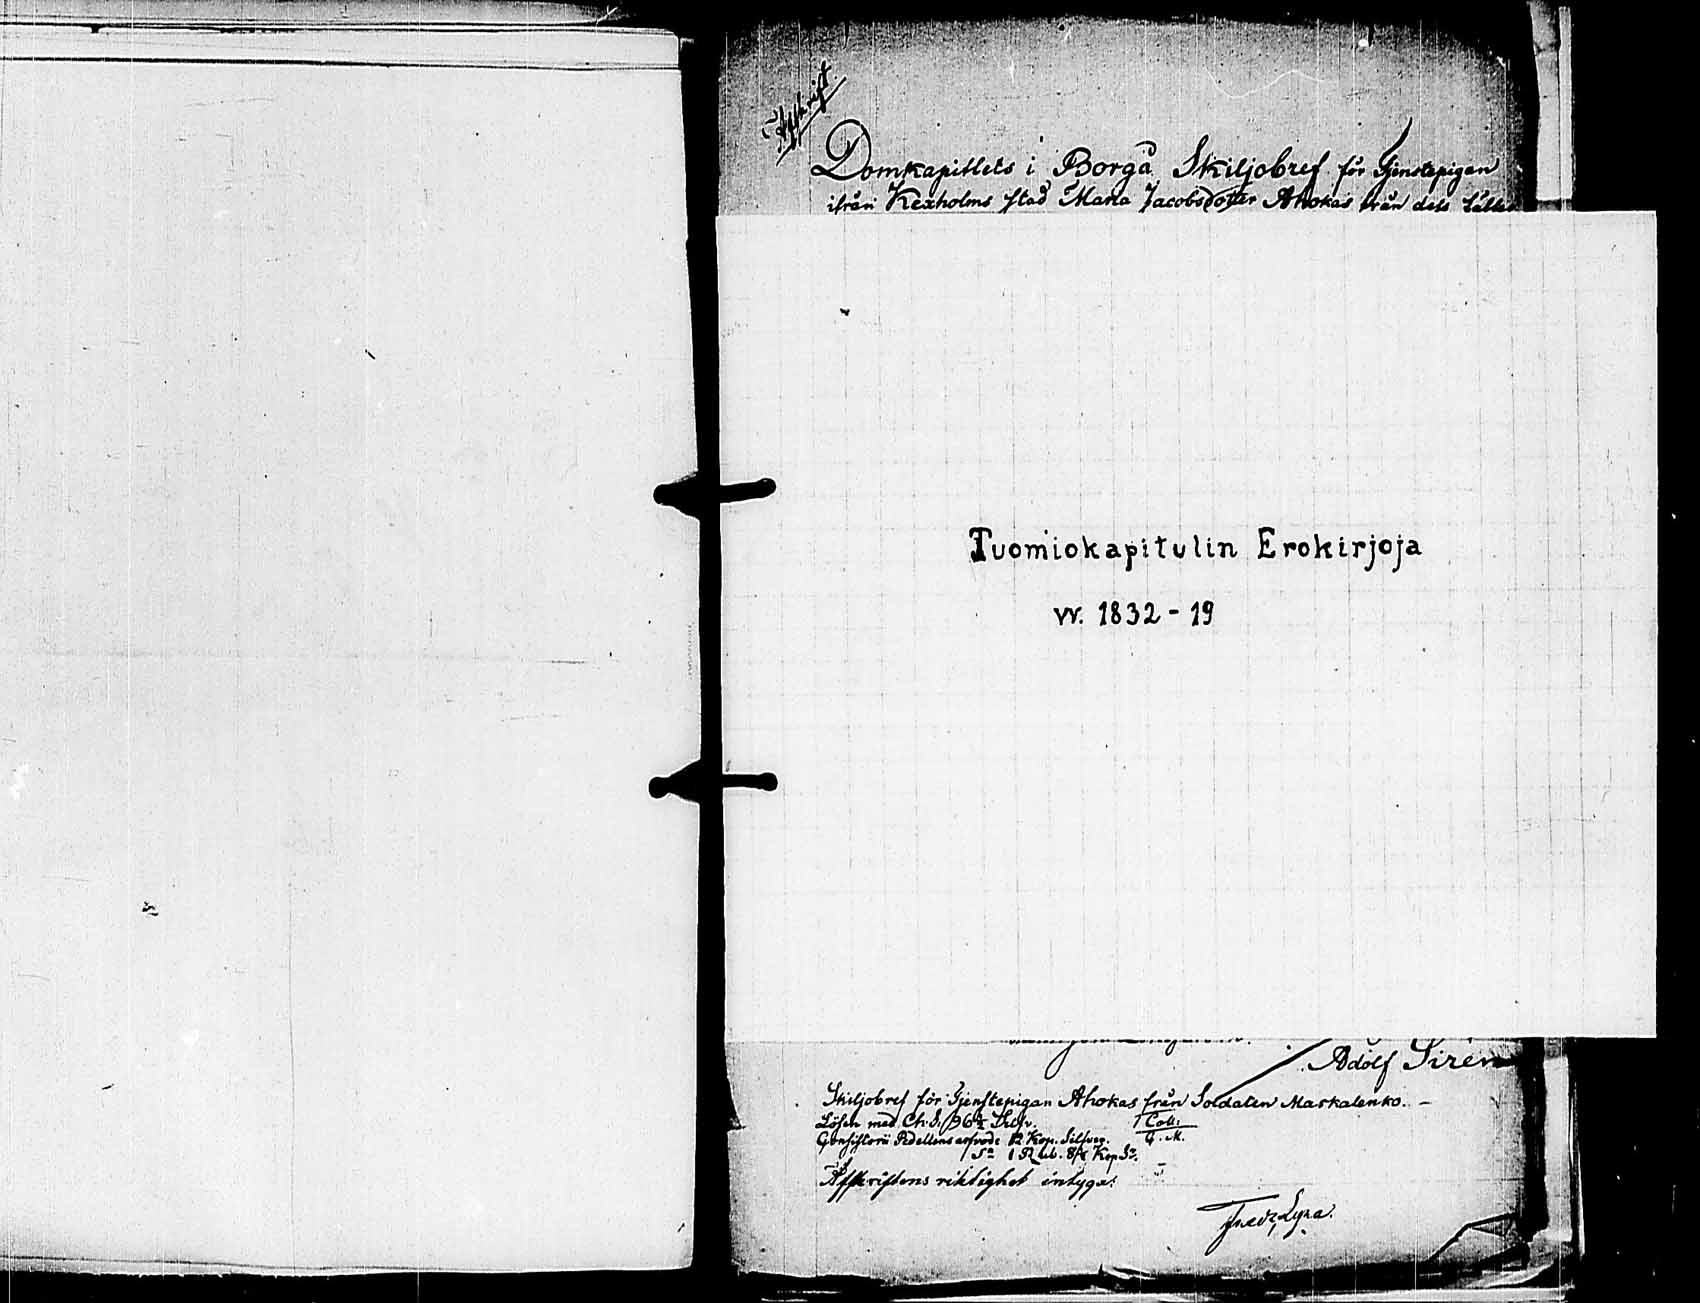 Afskrift.
Domkapitlets i Borgå Skiljobref för Tjenstepigan
ifrån Kexholms stad Maria Jacobsdotter Ahokas från dess
Tuomiokapitulin Erokirjoja
vv. 1832 - 19
Adolf Sirén
Skiljobref för Tjenstepigan Ahokas från Soldaten Maskalenko. -
Lösen med Ch. S. 96¾ Silfv. Coll:
Consistorii Pedellens arfvode 12 Kop. Silfver. G. M.
Sa 1 Rub. 8¾ Kop Sr.
Afskriftens riktighet intyga:
Fredr. Lyra.